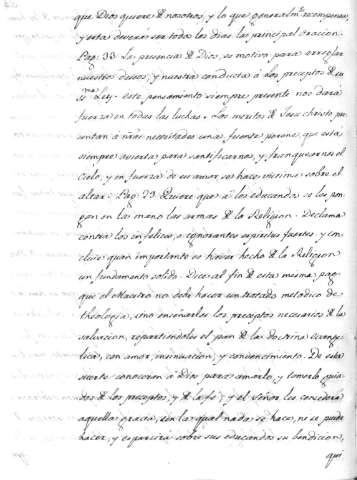 que Dios quiere de nosotros, y la que generalm.te recompensa,
y estas deverán ser todos los dias las principal oracion.
Pag. 33. La presencia de Dios, es motivo para arreglar
nuestros deseos, y nuestra conducta á los preceptos de su
s.ma Ley. este pensamiento siempre presente nos dará
fuerza en todas las luchas. Los meritos de Jesu christo, pre
sentan á nras necesidades una fuente perene, que está
siempre avierta para santificarnos, y franquearnos el
Cielo, y en fuerza de su amor se hace victima sobre el
altar. Pag. 73. Quiere que á los educandos se les pon
gan en las manos las armas de la Religion. Declama
contra los infelices, é ignorantes espiritus fuertes, y con
cluie quan importante es haver hecho de la Religion
un fundamento solido. Dice al fin de esta misma pag.
que el Maestro no debe hacer un tratado metodico de
theologia, sino enseñarles los preceptos necesarios de la
salvacion, repartiendoles el pan de la doctrina evange
lica, con amor, insinuacion, y convencimiento. De esta
suerte conocerán á Dios para amarlo, y temerlo, guia
dos de los preceptos, y de la fé, y el Señor les concederá
aquella gracia, sin la qual nada se hace, no se puede
hacer, y esparcirá sobre sus educandos su bendicion,
que